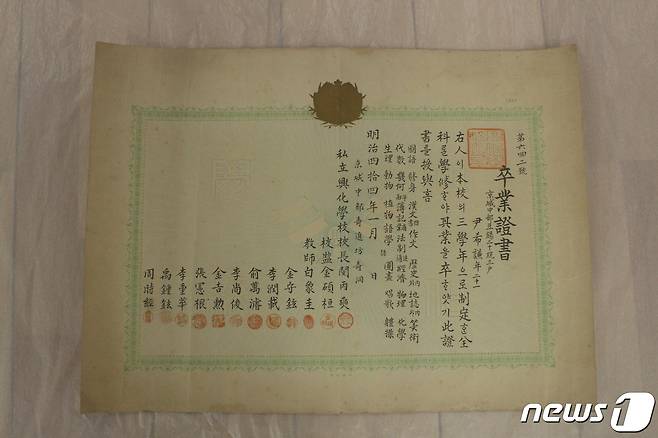 第六四二號
卒業證書
京城中部
尹希謙 年二十一
右人이本校의三學年으로制定한全
科를學修하야其業을卒하얏기此證
書를授與홈
國語 修身 漢文 作文 歷史 地誌 算術
代數 幾何 簿記 法制 經濟 物理 化學
生理 動物 植物 語學 圖畫 唱歌 體操
明治四拾四年一月 日
京城中部壽進坊壽洞
私立興化學校校長閔丙奭
校監金碩桓
教師白象圭
金守鉉
李潤載
兪萬濬
李尚俊
金吉勲
張憲根
李重華
禹鍾鉉
周時經
news1